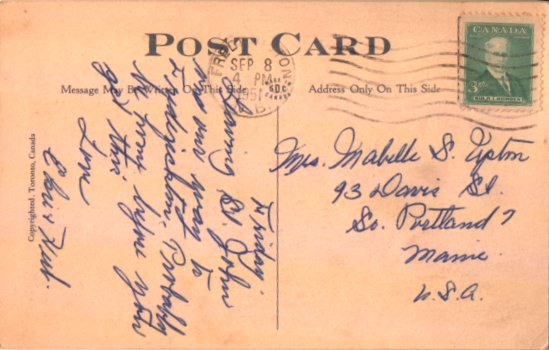 POST CARD
Message May Be Written On This Side
Address Only On This Side
SEP 8
4 PM
1951
N.B.
CANADA
3
Copyrighted, Toronto, Canada
Friday.
Leaving St. John
now our way to
Fredericton. Probably
be home before you
get this
Love
Mrs. Mabelle S. Upton
93 Davis St.
So. Portland 7
Maine
U.S.A.